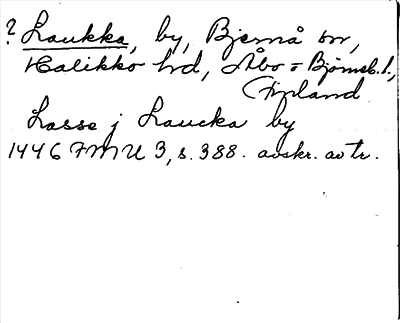 ? Laukka, by, Bjernå sn,
Halikko hd, Åbo = Bjørneb. l.,
Finland
Lasse j Laucka by
1446 FMU 3, s. 388. avskr. av tr.